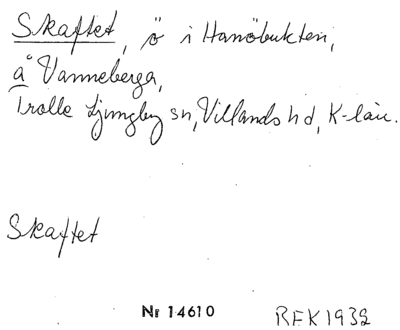 Skaftet, ö i Hanöbukten,
å Vanneberga,
Trolle Ljungby sn, Villands hd, K-län.
Skaftet
Nr 14610
REK 1938